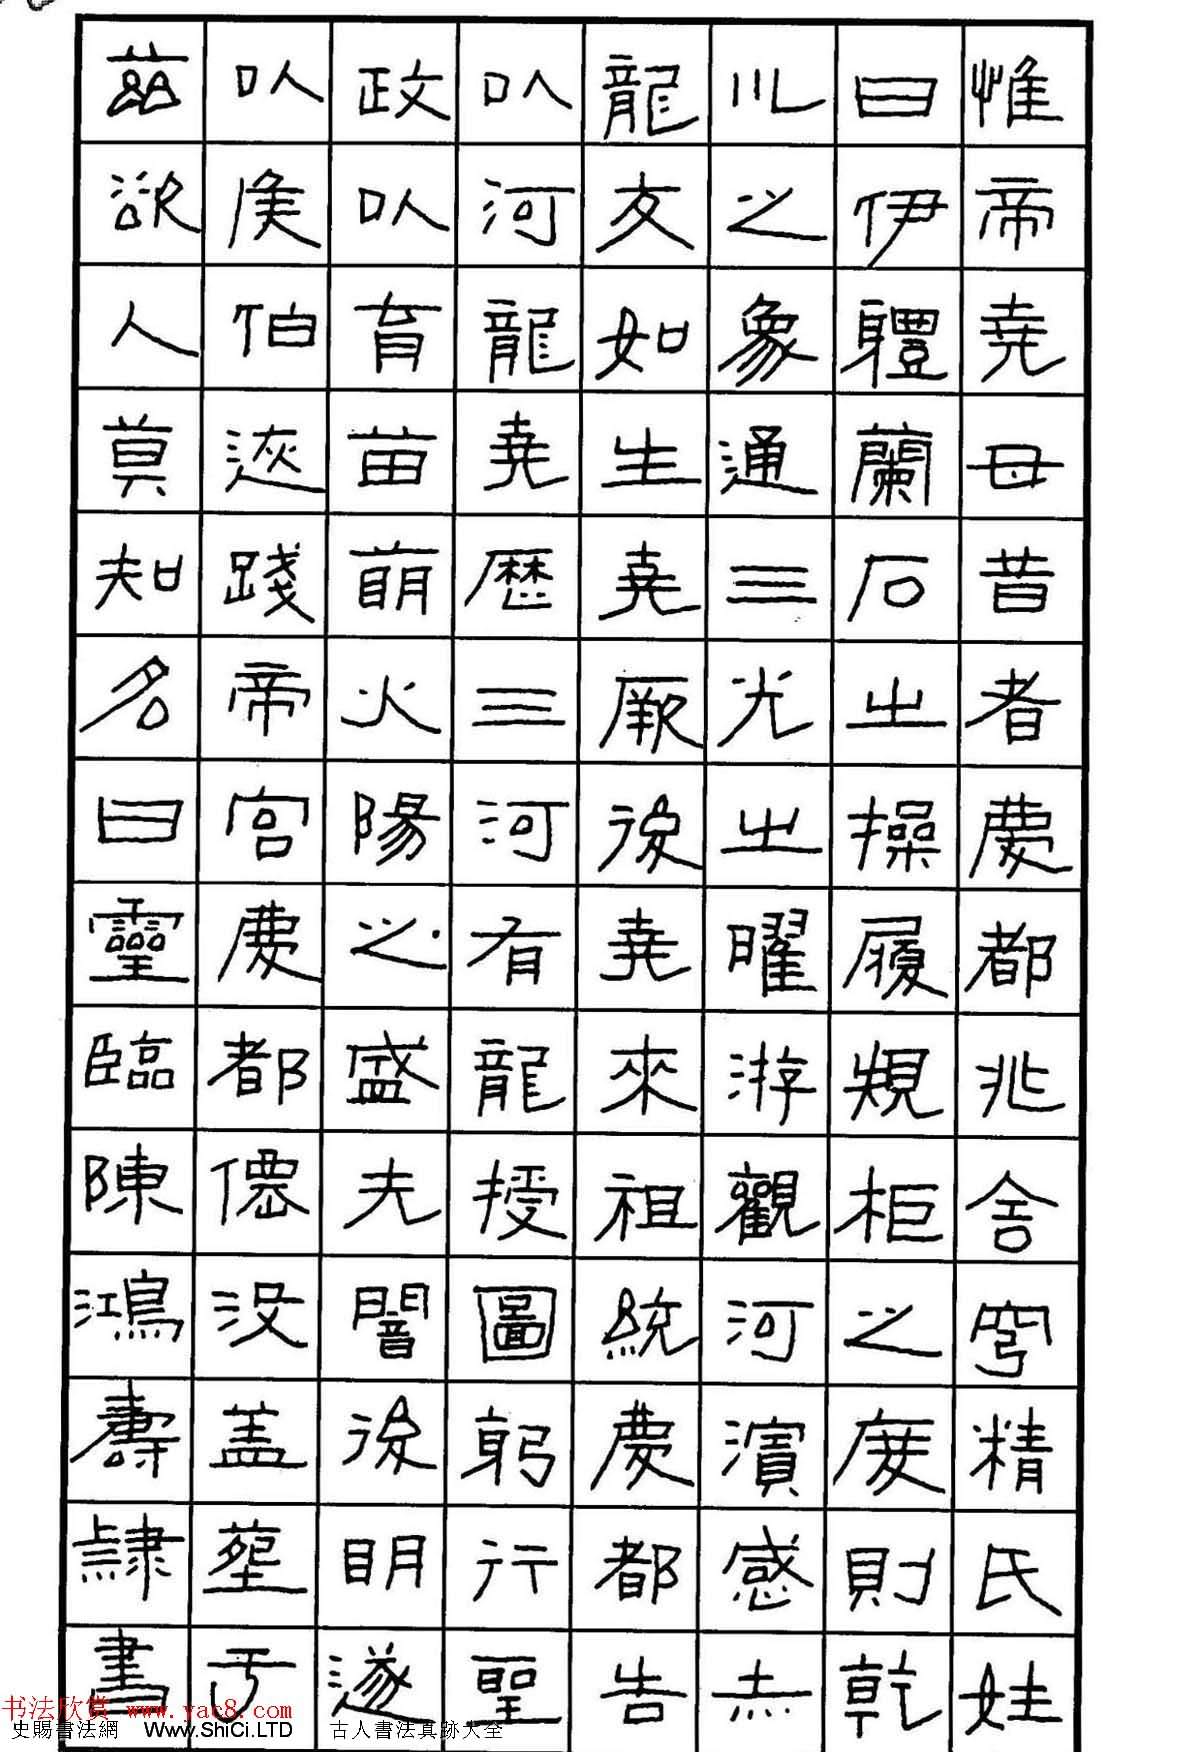 惟帝堯母昔者慶都兆舍穹精氏姓
曰伊軆蘭石之操履規柜之度則乾
川之象通三光之曜游觀河濱感赤
龍交如生堯厥後堯來祖統慶都告
以河龍堯歷三河有龍授圖躬行聖
政以育苗萌火陽之盛先闇後明遂
以侯伯恢踐帝宮慶都僊没蓋葬于
茲欲人莫知名曰靈臨陳鴻壽隸書
书法欣赏 www.yac8.com
史賜書法網 Www.ShiCi.LTD 古人書法真跡大全